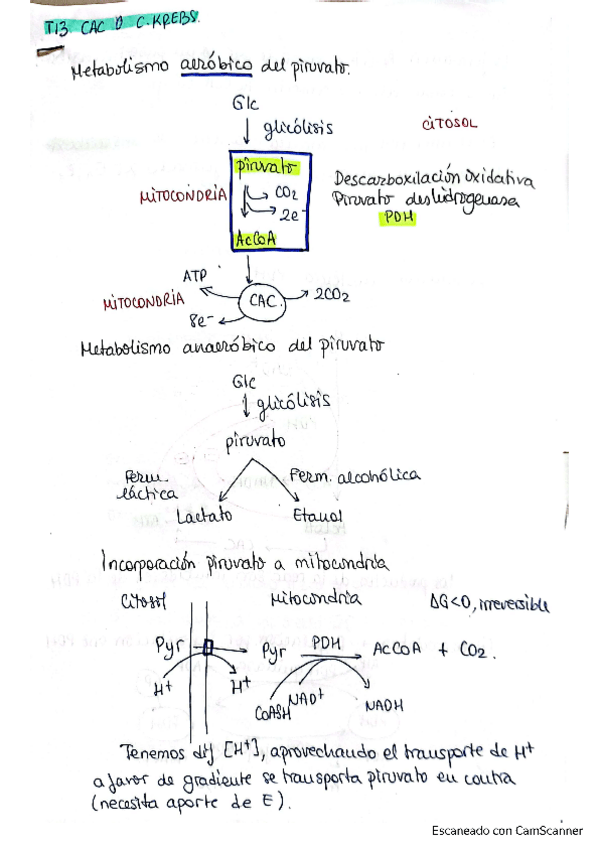 T13. CAC o C. KREBS.
Metabolismo aeróbico del piruvato.
Glc
glicólisis
CITOSOL
piruvato
MITOCONDRIA
CO2
2e-
AcCoA
Descarboxilación oxidativa
Piruvato deshidrogenasa
PDH
ATP
MITOCONDRIA
CAC.
2CO2
8e-
Metabolismo anaeróbico del piruvato
Glc
glicólisis
piruvato
Ferm.
láctica
Ferm. alcohólica
Lactato
Etanol
Incorporación piruvato a mitocondria
Citosol
Mitocondria
ΔG<0, irreversible
Pyr
Pyr
PDH
AcCoA + CO2.
H+
H+
CoASH
NAD+
NADH
Tenemos dif [H+], aprovechando el transporte de H+
a favor de gradiente se transporta piruvato en contra
(necesita aporte de E).
Escaneado con CamScanner